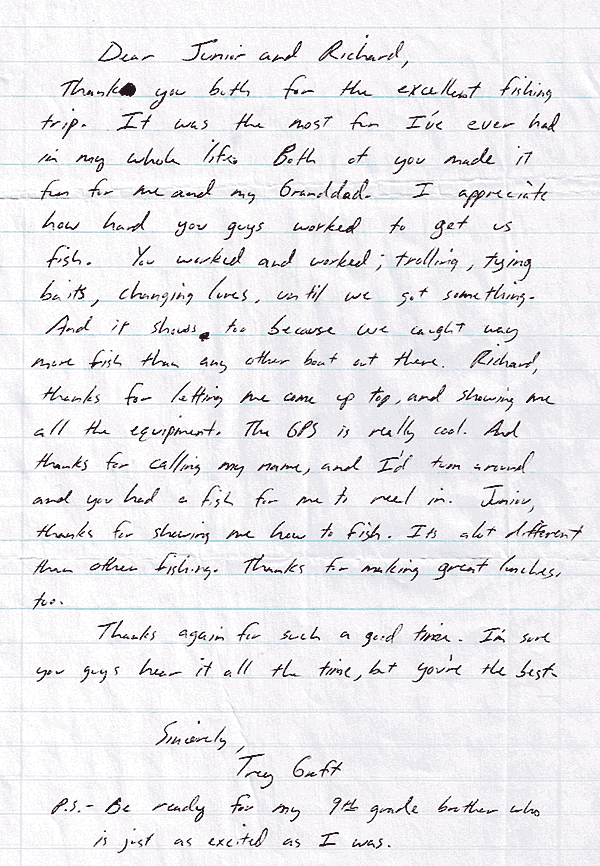 Dear Junior and Richard,
Thanks you both for the excellent fishing
trip. It was the most fun I've ever had
in my whole life. Both of you made it
fun for me and my Granddad. I appreciate
how hard you guys worked to get us
fish. You worked and worked; trolling, tying
baits, changing lures, until we got something.
And it shows too because we caught way
more fish than any other boat out there. Richard,
thanks for letting me come up top, and showing me
all the equipment. The GPS is really cool. And
thanks for calling my name, and I'd turn around
and you had a fish for me to reel in. Junior,
thanks for showing me how to fish. Its alot different
than other fishing. Thanks for making great lunches,
too.
Thanks again for such a good time. I'm sure
you guys hear it all the time, but you're the best.
Sincerely,
Trey
P.S.- Be ready for my 9th grade brother who
is just as excited as I was.